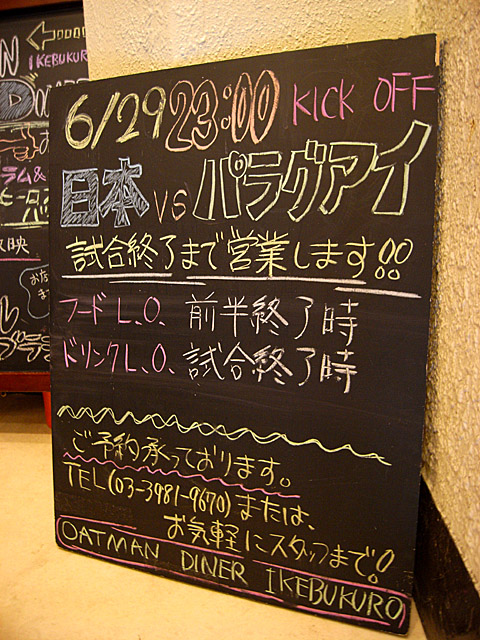 6/29 23:00 KICK OFF
日本 VS パラグアイ
試合終了まで営業します!!
フード L.O. 前半終了時
ドリンク L.O. 試合終了時
ご予約承っております。
TEL (03-3981-9670) または、
お気軽にスタッフまで!
OATMAN DINER IKEBUKURO
IKEBUKURO